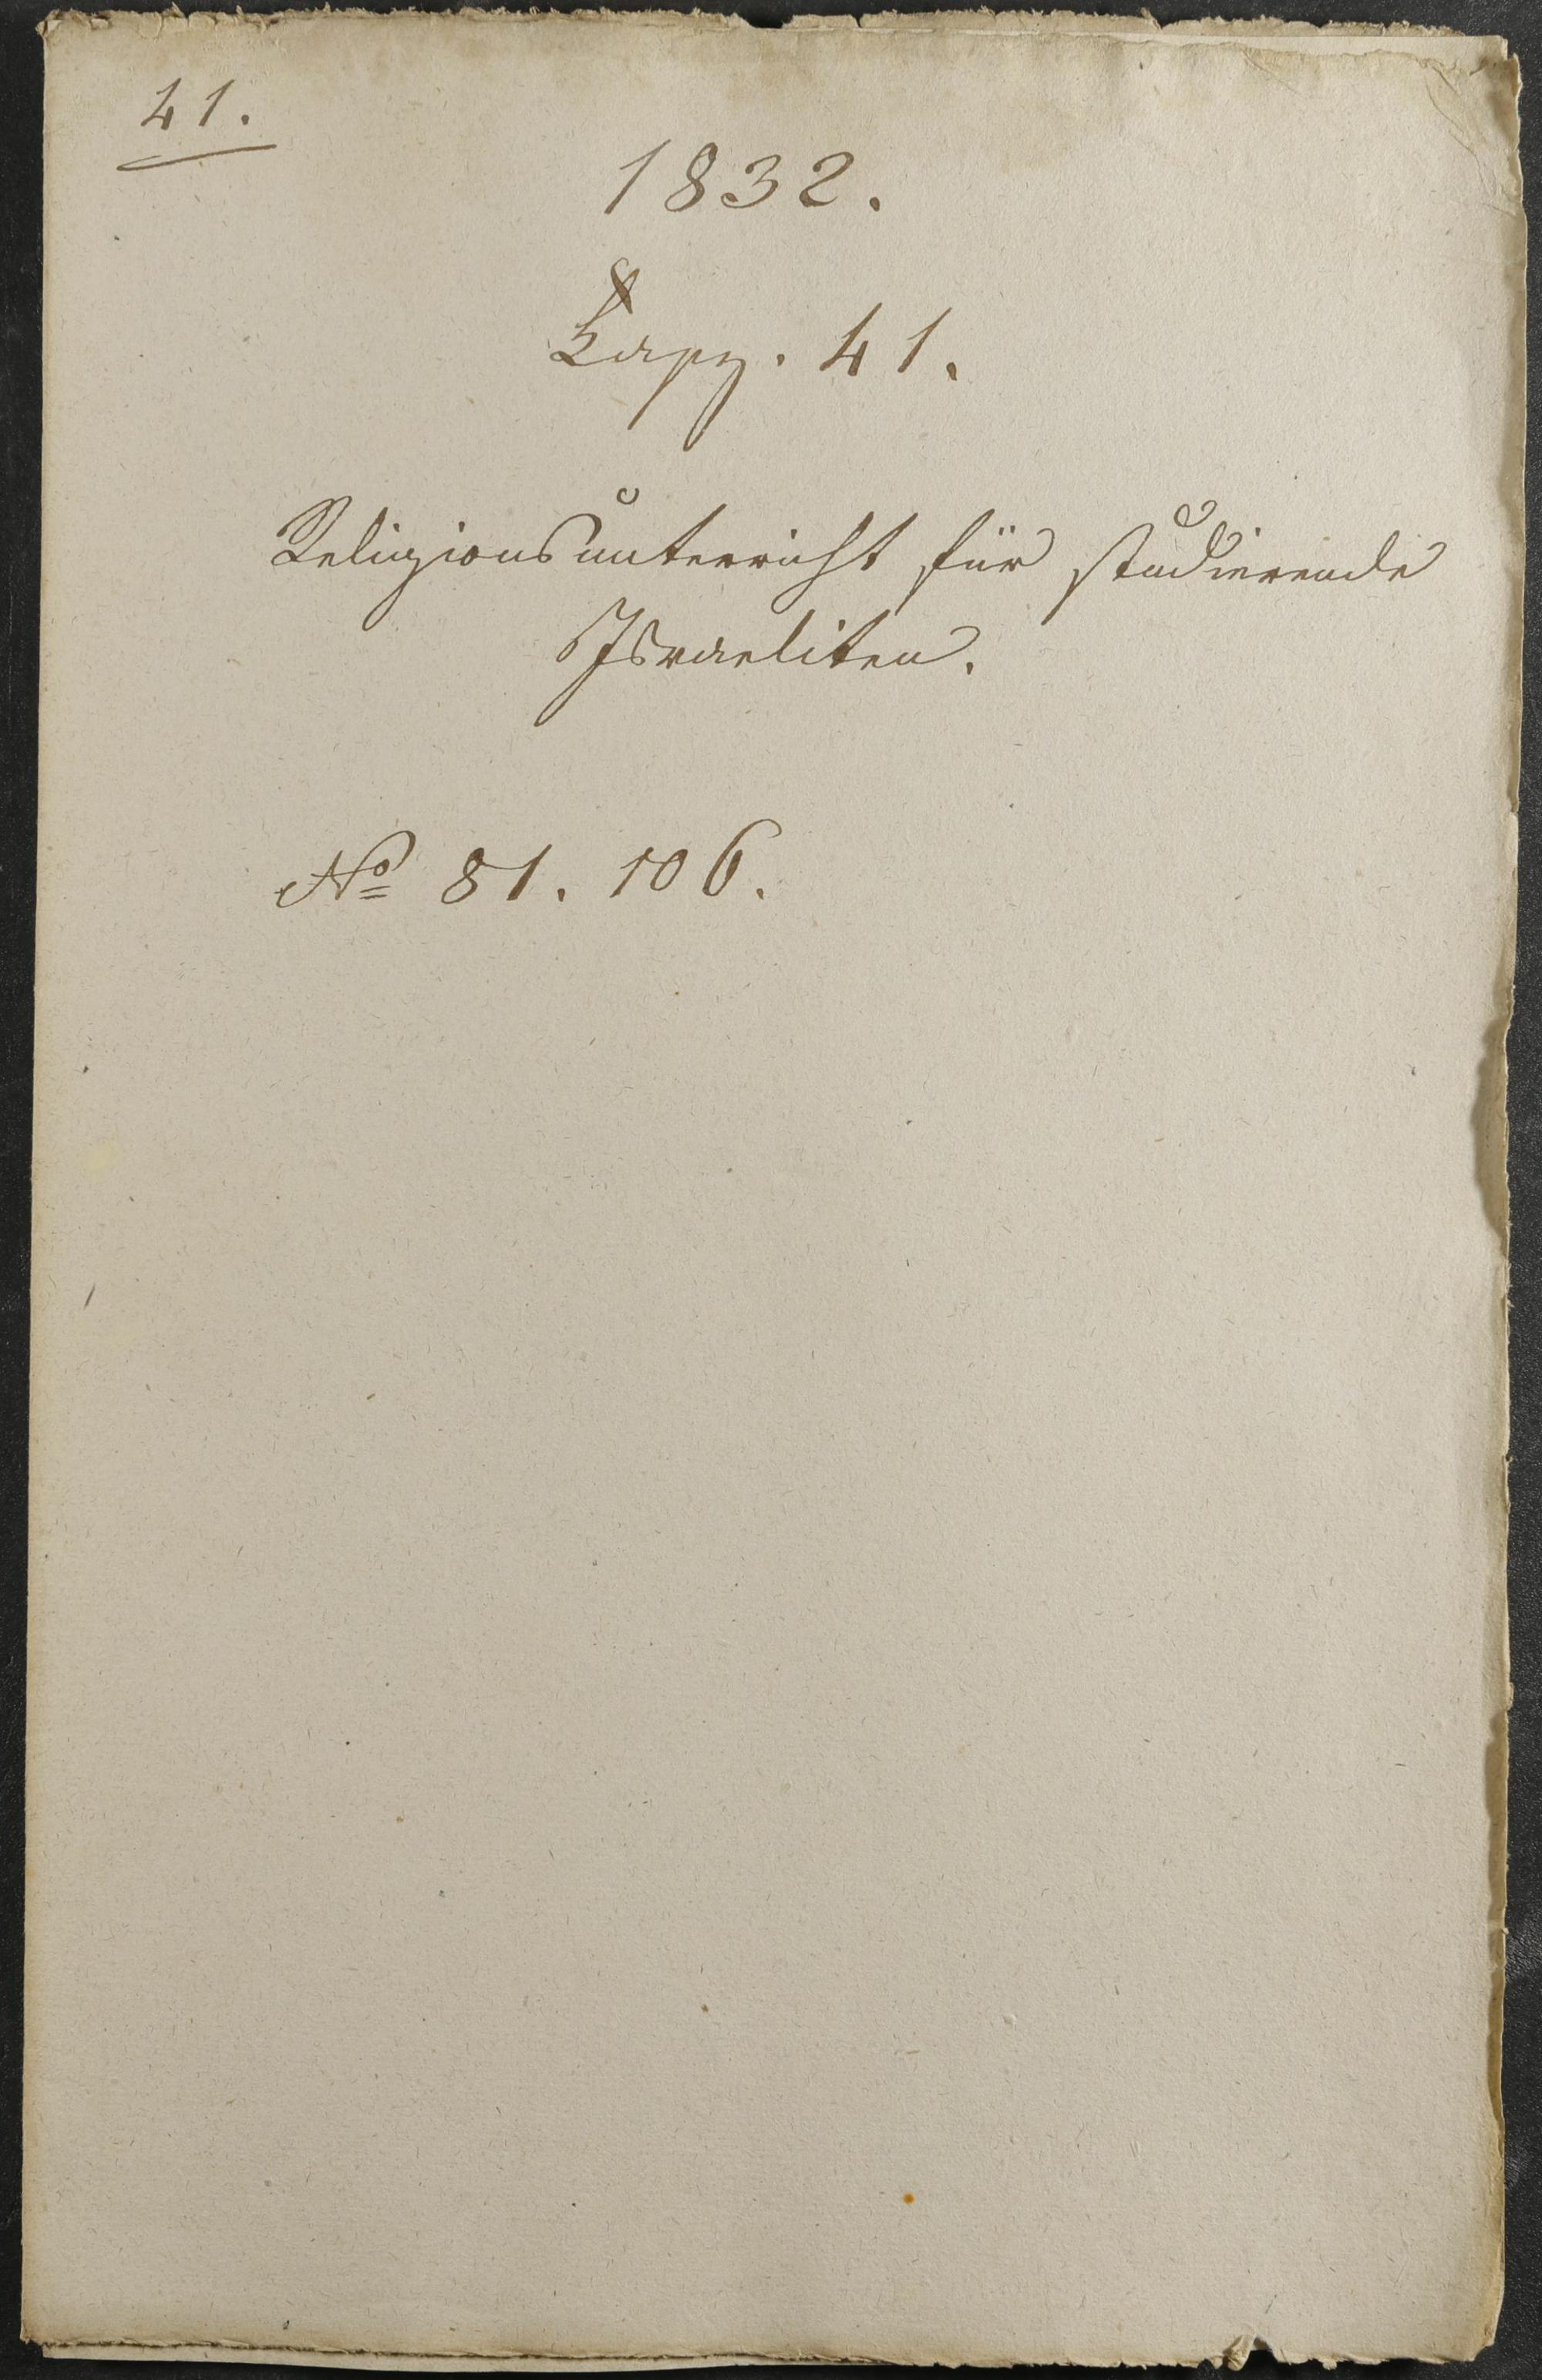 41.
1832.
Fasz. 41.
Religionsunterricht für studierende
Israeliten.
No 81. 106.